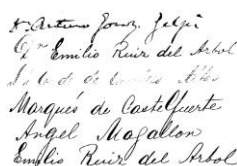 Dr. Arturo Gonz. Gelpi
Emilio Ruiz del Arbol
de
Marqués de Castelfuerte
Angel Magallon
Emilio Ruiz del Arbol